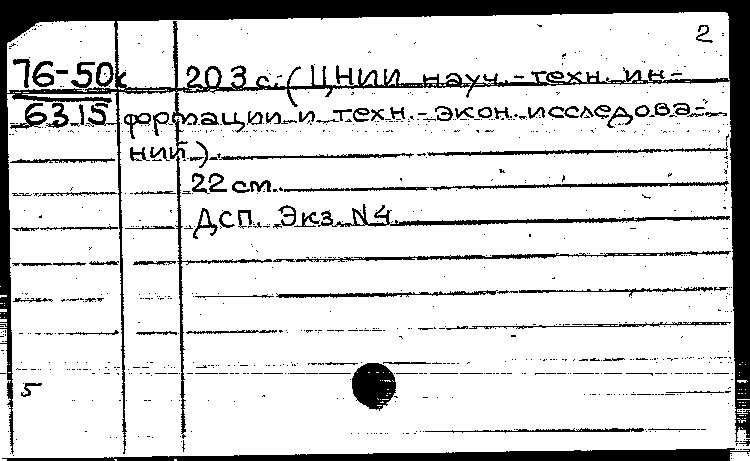 2
76-50к 203 с. (ЦНИИ науч.-техн. ин-
6315 формации и техн.-экон. исследова-
ний).
22 см.
Дсп. Экз. N4.
5